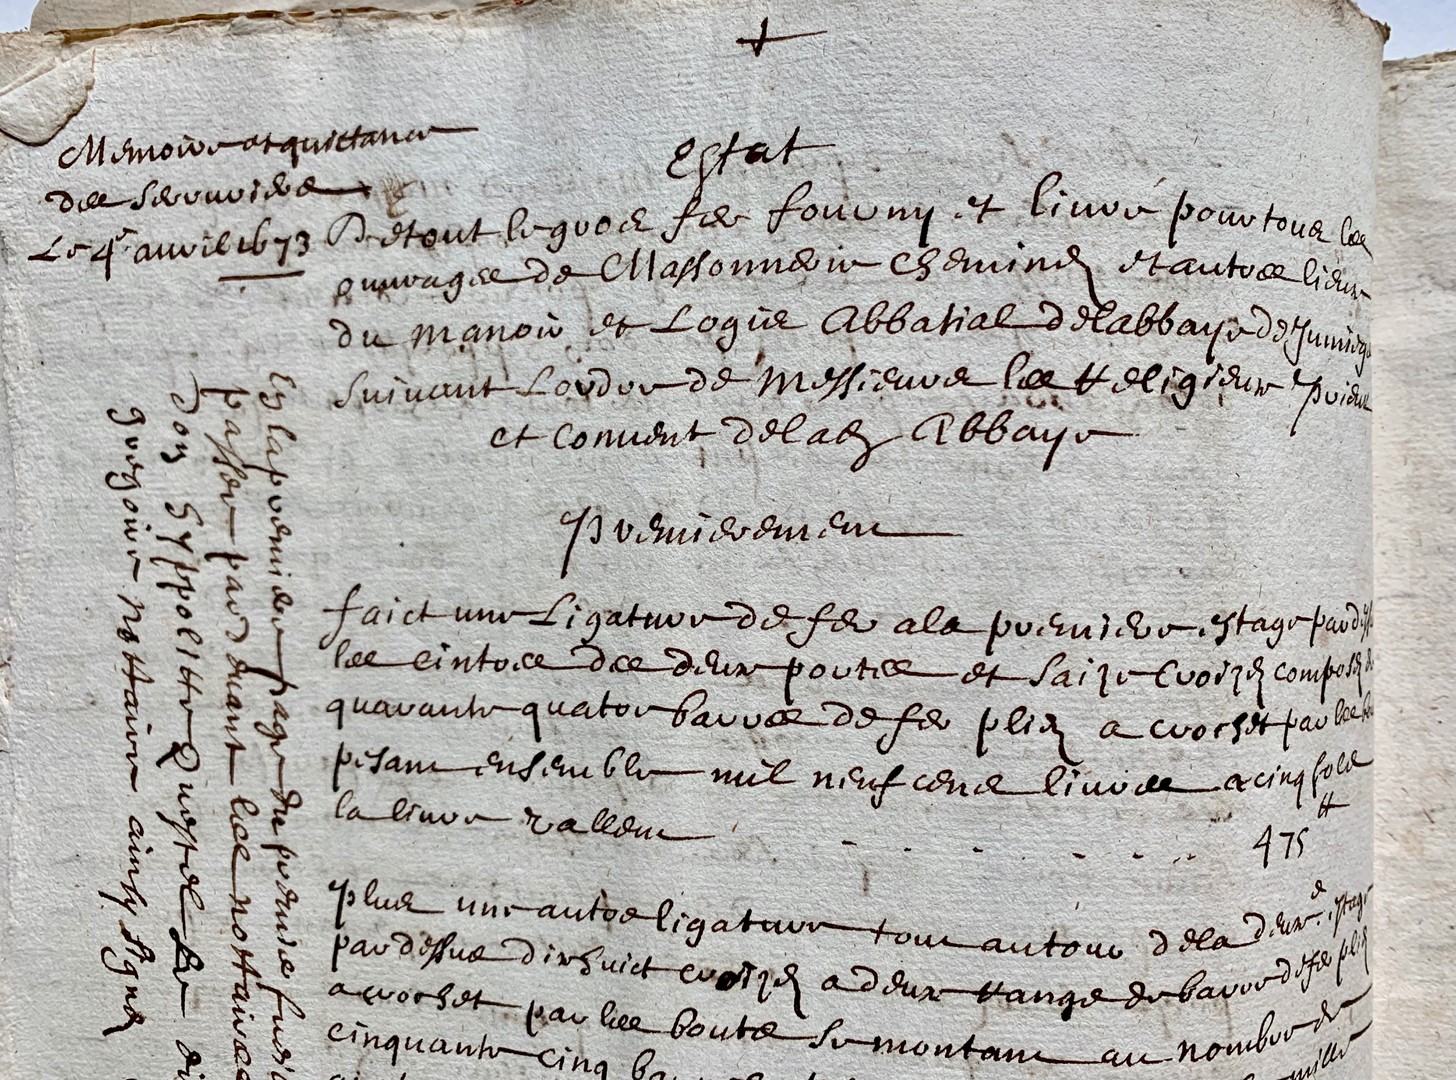 Memoire et quittance
des serruriers
Le 4e avril 1673
Estat
De tout le gros fer fourny et livré pour tous les
ouvrages de Massonnerie cheminéz et autres lieux
du manoir et Logis Abbatial de labbaye de Jumiege
suivant Lordre de Messieurs les Religieux Prieur
et convent de lad Abbaye
Premierement
faict une Ligature de fer a la premiere estage par
les cintres des deux portes et saize croizéz composéz de
quarante quatre barres de fer pliéz a crochet par les
pesant ensemble mil neuf cens livres a cinq solz
la livre vallent 475 tt
Plus une autre ligature tout autour de la deuxe. estage
par dessus dixhuict croizéz a deux Range de barre de fer pliéz
a crochet par les bouts se montant au nombre de
cinquante cinq
En la premiere page du premier
passer par devant les nottaires
Don Hyppolitte
Gregoire nottaire ainsy signé